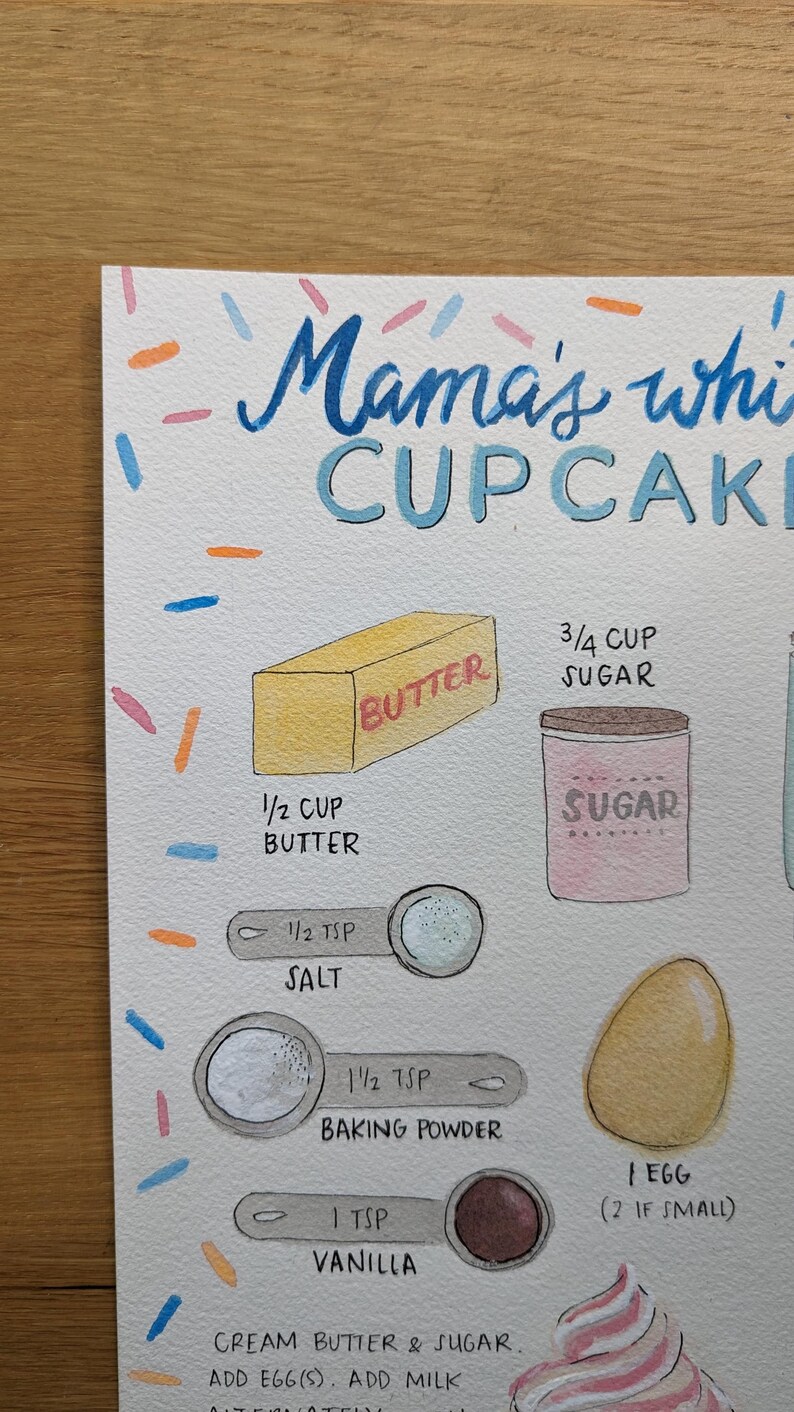 Mama's whi
CUPCAK
BUTTER
1/2 CUP
BUTTER
3/4 CUP
SUGAR
SUGAR
1/2 TSP
SALT
1 1/2 TSP
BAKING POWDER
1 EGG
(2 IF SMALL)
1 TSP
VANILLA
CREAM BUTTER & SUGAR.
ADD EGG(S). ADD MILK
ALTERNATELY